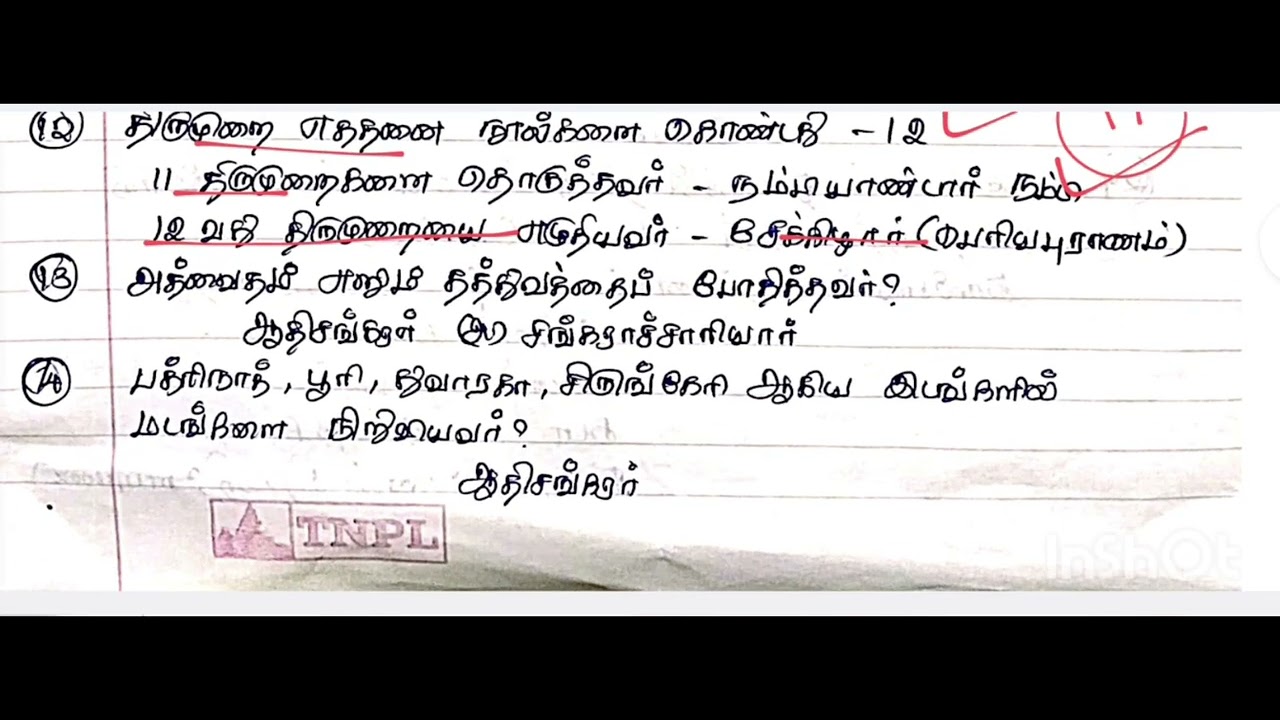 (12) திருமுறை எத்தனை நூல்களை கொண்டது - 12
11 திருமுறைகளை தொகுத்தவர் - நம்பியாண்டார் நம்பி
12 வது திருமுறையை எழுதியவர் - சேக்கிழார் (பெரியபுராணம்)
(13) அத்வைதம் எனும் தத்துவத்தைப் போதித்தவர்?
ஆதிசங்கரர் (எ) சங்கராச்சாரியார்
(14) பத்ரிநாத், பூரி, துவாரகா, சிருங்கேரி ஆகிய இடங்களில்
மடங்களை நிறுவியவர்?
ஆதிசங்கரர்
TNPL
InShOt